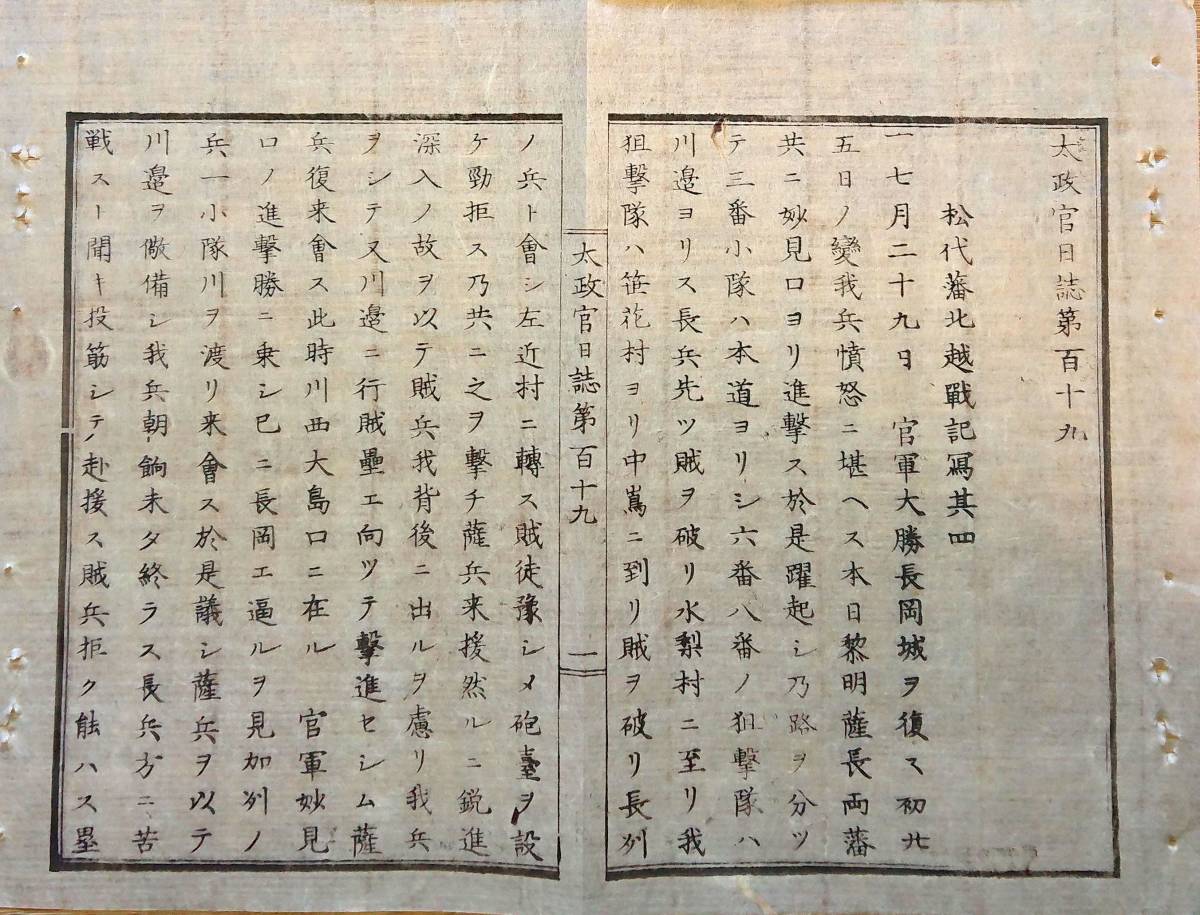 太政官日誌第百十九
松代藩北越戰記寫其四
一七月二十九日 官軍大勝長岡城ヲ復ス初廿
五日ノ變我兵憤怒ニ堪ヘス本日黎明薩長両藩
共ニ妙見口ヨリ進撃ス於是躍起シ乃路ヲ分ツ
テ三番小隊ハ本道ヨリシ六番八番ノ狙撃隊ハ
川邉ヨリス長兵先ツ賊ヲ破リ水梨村ニ至リ我
狙撃隊ハ笹花村ヨリ中嶌ニ到リ賊ヲ破リ長州
太政官日誌第百十九
一
ノ兵ト會シ左近村ニ轉ス賊徒豫シメ砲臺ヲ設
ケ勁拒ス乃共ニ之ヲ撃チ薩兵来援然ルニ鋭進
深入ノ故ヲ以テ賊兵我背後ニ出ルヲ慮リ我兵
ヲシテ又川邉ニ行賊壘エ向ツテ撃進セシム薩
兵復来會ス此時川西大島口ニ在ル 官軍妙見
口ノ進撃勝ニ乗シ已ニ長岡エ逼ルヲ見加州ノ
兵一小隊川ヲ渡リ来會ス於是議シ薩兵ヲ以テ
川邉ヲ儆備シ我兵朝餉未タ終ラス長兵方ニ苦
戦スト聞キ投筯シテ赴援ス賊兵拒ク能ハス壘